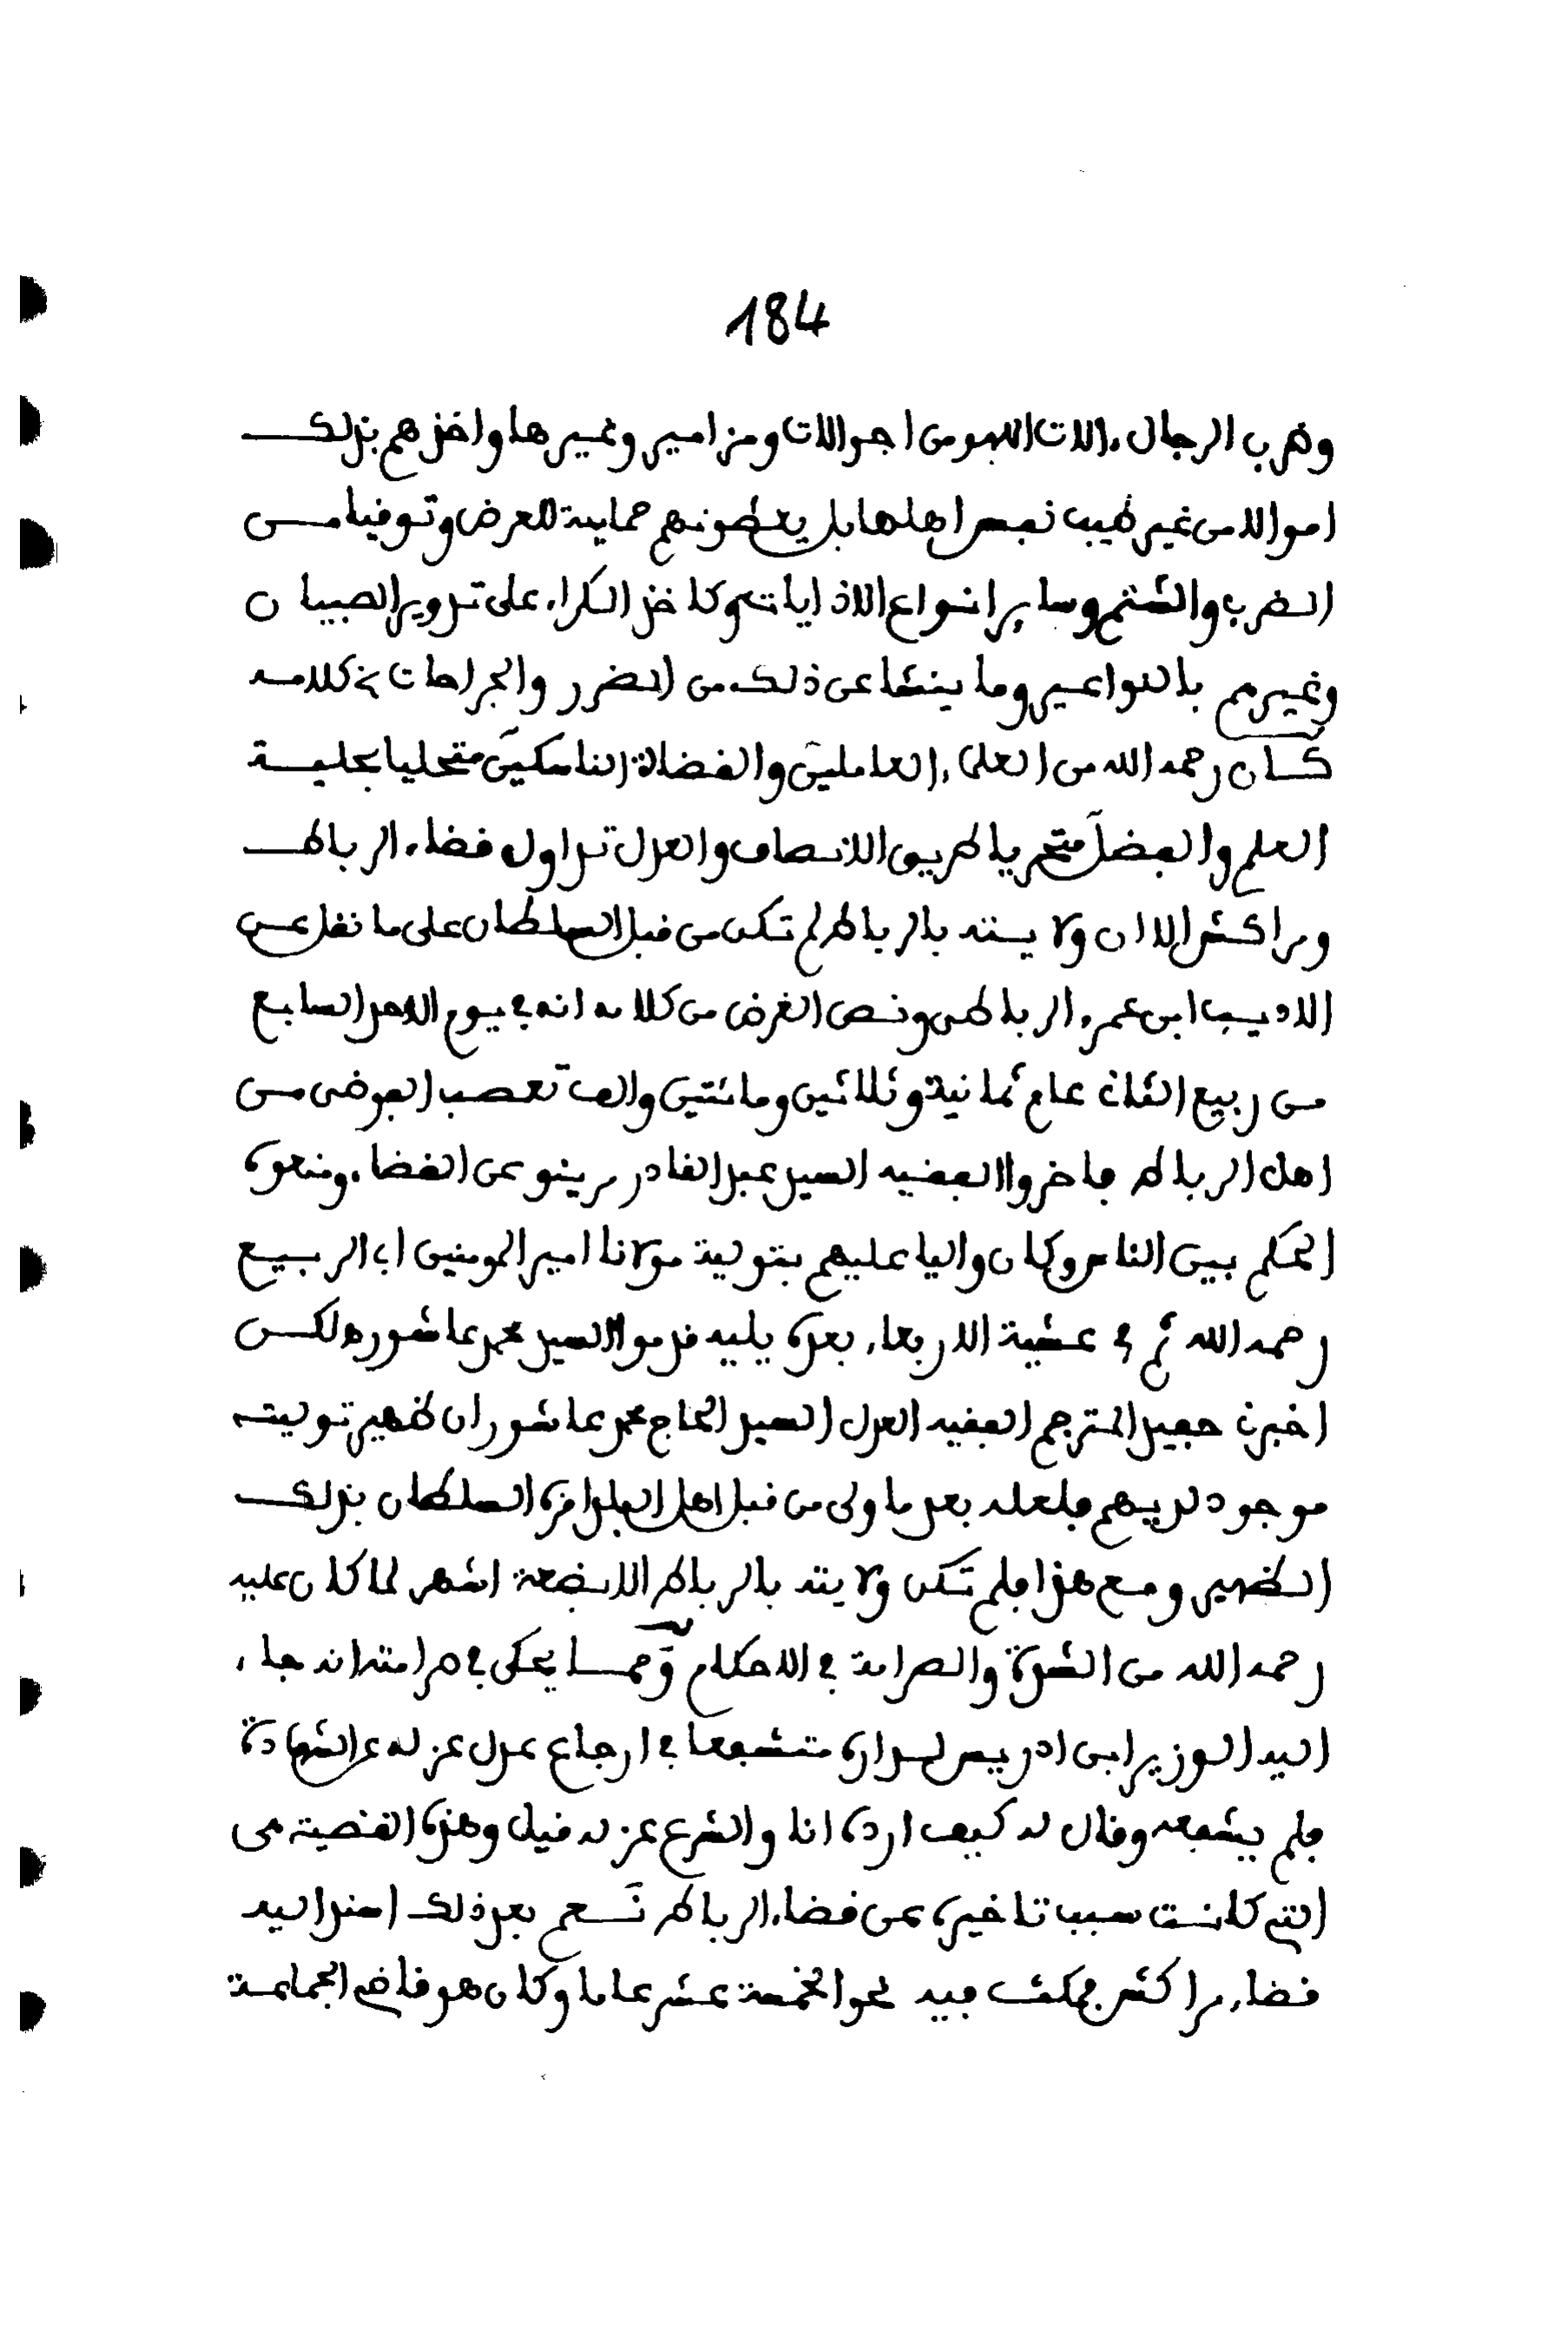 184
وضرب الرجال ءالات اللهو من اجوالات ومزامير وغيرها واخذهم بذلك
اموالا من غير طيب نفس اهلها بل يعطونهم حماية للعرض وتوفيا من
الضرب والشتم وساير انواع الاذايات وكاخذ الكراء على تدوير الصبيان
وغيرهم بالنواعير وما ينشا عن ذلك من الضرر والجراحات كلامه
كان رحمه الله من العلماء العاملين والقضاة الناسكين متحليا بحلية
العلم والفضل متحريا طريق الانصاف والعدل تداول قضاء الرباط
ومراكش الا ان ولايته بالرباط لم تكن من قبل السلطان على ما نقل عن
الاديب ابن عمرو الرباطي ونص الغرض من كلامه انه في يوم الاحد السابع
من ربيع الثاني عام ثمانية وثلاثين ومائتين والف تعصب الفوضى من
اهل الرباط فاخروا الفقيه السيد عبد القادر مرينو عن القضاء ومنعوه
الحكم بين الناس وكان واليا عليهم بتولية مولانا امير المومنين ابي الربيع
رحمه الله ثم في عشية الاربعاء بعده يليه قدموا السيد محمد عاشور ه لكن
اخبرني حفيد المترجم الفقيه العدل السيد الحاج محمد عاشور ان ظهير توليته
موجود لديهم فلعله بعد ما ولي من قبل اهل البلد اقره السلطان بذلك
الظهير ومع هذا فلم تكن ولايته بالرباط الا بضعة اشهر لما كان عليه
رحمه الله من الشدة والصرامة في الاحكام ومما يحكى في صرامته انه جاء
اليه الوزير ابن ادريس لداره متشفعا في ارجاع عدل عزله عن الشهادة
فلم يشفعه وقال له كيف ارده انا والشرع عزله قيل وهذه القضية هي
التي كانت سبب تاخيره عن قضاء الرباط نعم بعد ذلك اسند اليه
قضاء مراكش فمكث فيه نحو الخمسة عشر عاما وكان هو قاضي الجماعة